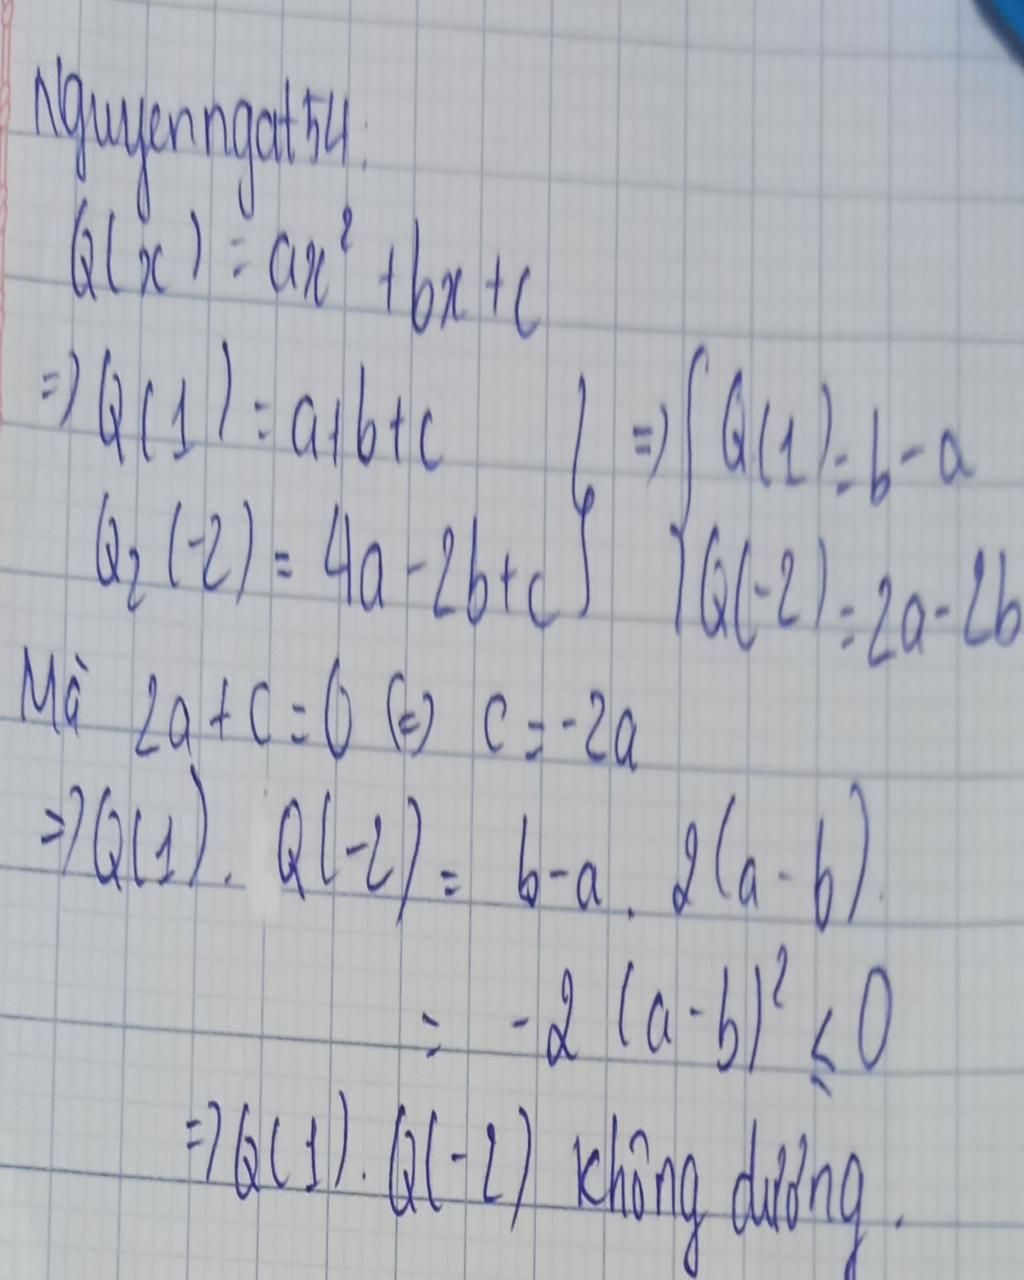 Nguyenngat54.
Q(x) = ax² + bx + c
=> Q(1) = a+b+c } => { Q(1) = b - a
Q₂(-2) = 4a - 2b + c } { Q(-2) = 2a - 2b
Mà 2a + c = 0 <=> c = -2a
=> Q(1) . Q(-2) = b - a . 2(a - b).
= -2 (a - b)² ≤ 0
=> Q(1) . Q(-2) không dương.